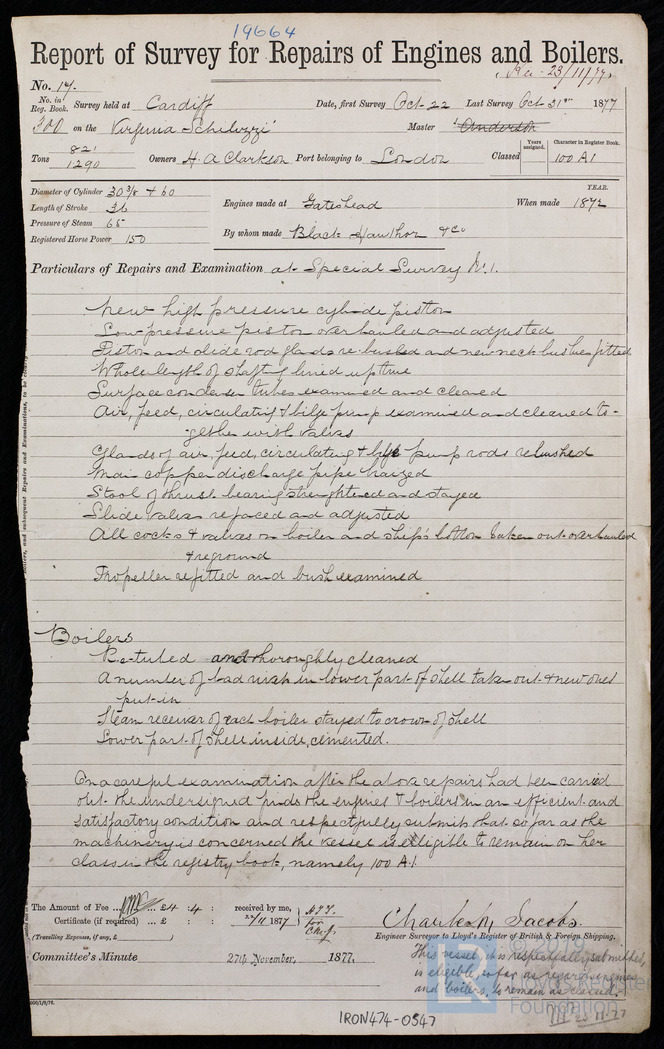 19664
Report of Survey for Repairs of Engines and Boilers.
Rec. 23/11/77
No. 14.
No. in Reg. Book. Survey held at Cardiff Date, first Survey Oct 22 Last Survey Oct 31st 1877
300 on the Virginia Schiluzzi Master Anderson
Tons 821 1290 Owners H. A Clarkson Port belonging to London Classed Years assigned. Character in Register Book. 100 A1
Diameter of Cylinder 30 3/8 + 60
Length of Stroke 36
Pressure of Steam 65
Registered Horse Power 150
Engines made at Gateshead When made YEAR. 1872
By whom made Black Hawthor & Co
Particulars of Repairs and Examination at Special Survey No. 1.
New high pressure cylinde piston
Low pressure piston overhauled and adjusted
Piston and slide rod glands rebushed and new neck bushes fitted
Whole length of shafting lined up true
Surface condenser tubes examined and cleaned
Air, feed, circulating & bilge pump examined and cleaned to-
gether with valves
Glands of air, feed, circulating & bilge pump rods rebushed
Main copper discharge pipe brazed
Stool of thrust bearing strengthened and stayed
Slide valves refaced and adjusted
All cocks & valves on boiler and ship's bottom taken out overhauled
& reground
Propeller refitted and bush examined
Boilers, and subsequent Repairs and Examinations, to be
Boilers
Re-tubed and thoroughly cleaned
A number of bad rivets in lower part of shell taken out & new ones
put in
Steam receiver of each boiler stayed to crown of shell
Lower part of shell inside, cemented.
On a careful examination after the above repairs had been carried
out the undersigned finds the engines & boilers in an efficient and
satisfactory condition and respectfully submits that so far as the
machinery is concerned the vessel is elligible to remain on her
class in the registry book, namely 100 A.1.
The Amount of Fee ... £4 : 4 : received by me,
Certificate (if required) ... £ : : 22/11 1877
(Travelling Expenses, if any, £ )
Charles H Jacobs
Engineer Surveyor to Lloyd's Register of British & Foreign Shipping.
Committee's Minute 27th November, 1877.
This vessel, it is respectfully submitted,
is eligible, so far as regards engines
and boilers, to remain as classed.
23.11.77
Lloyd's Register
Foundation
IRON474-0547